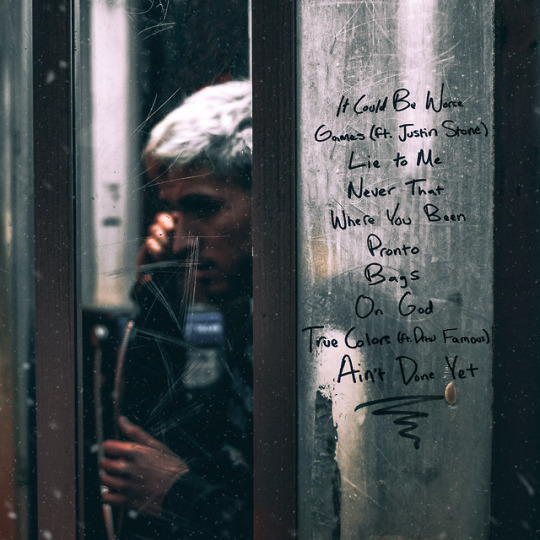 It Could Be Worse
Games (ft. Justin Stone)
Lie to Me
Never That
Where You Been
Pronto
Bags
On God
True Colors (ft. Drew Famous)
Ain't Done Yet